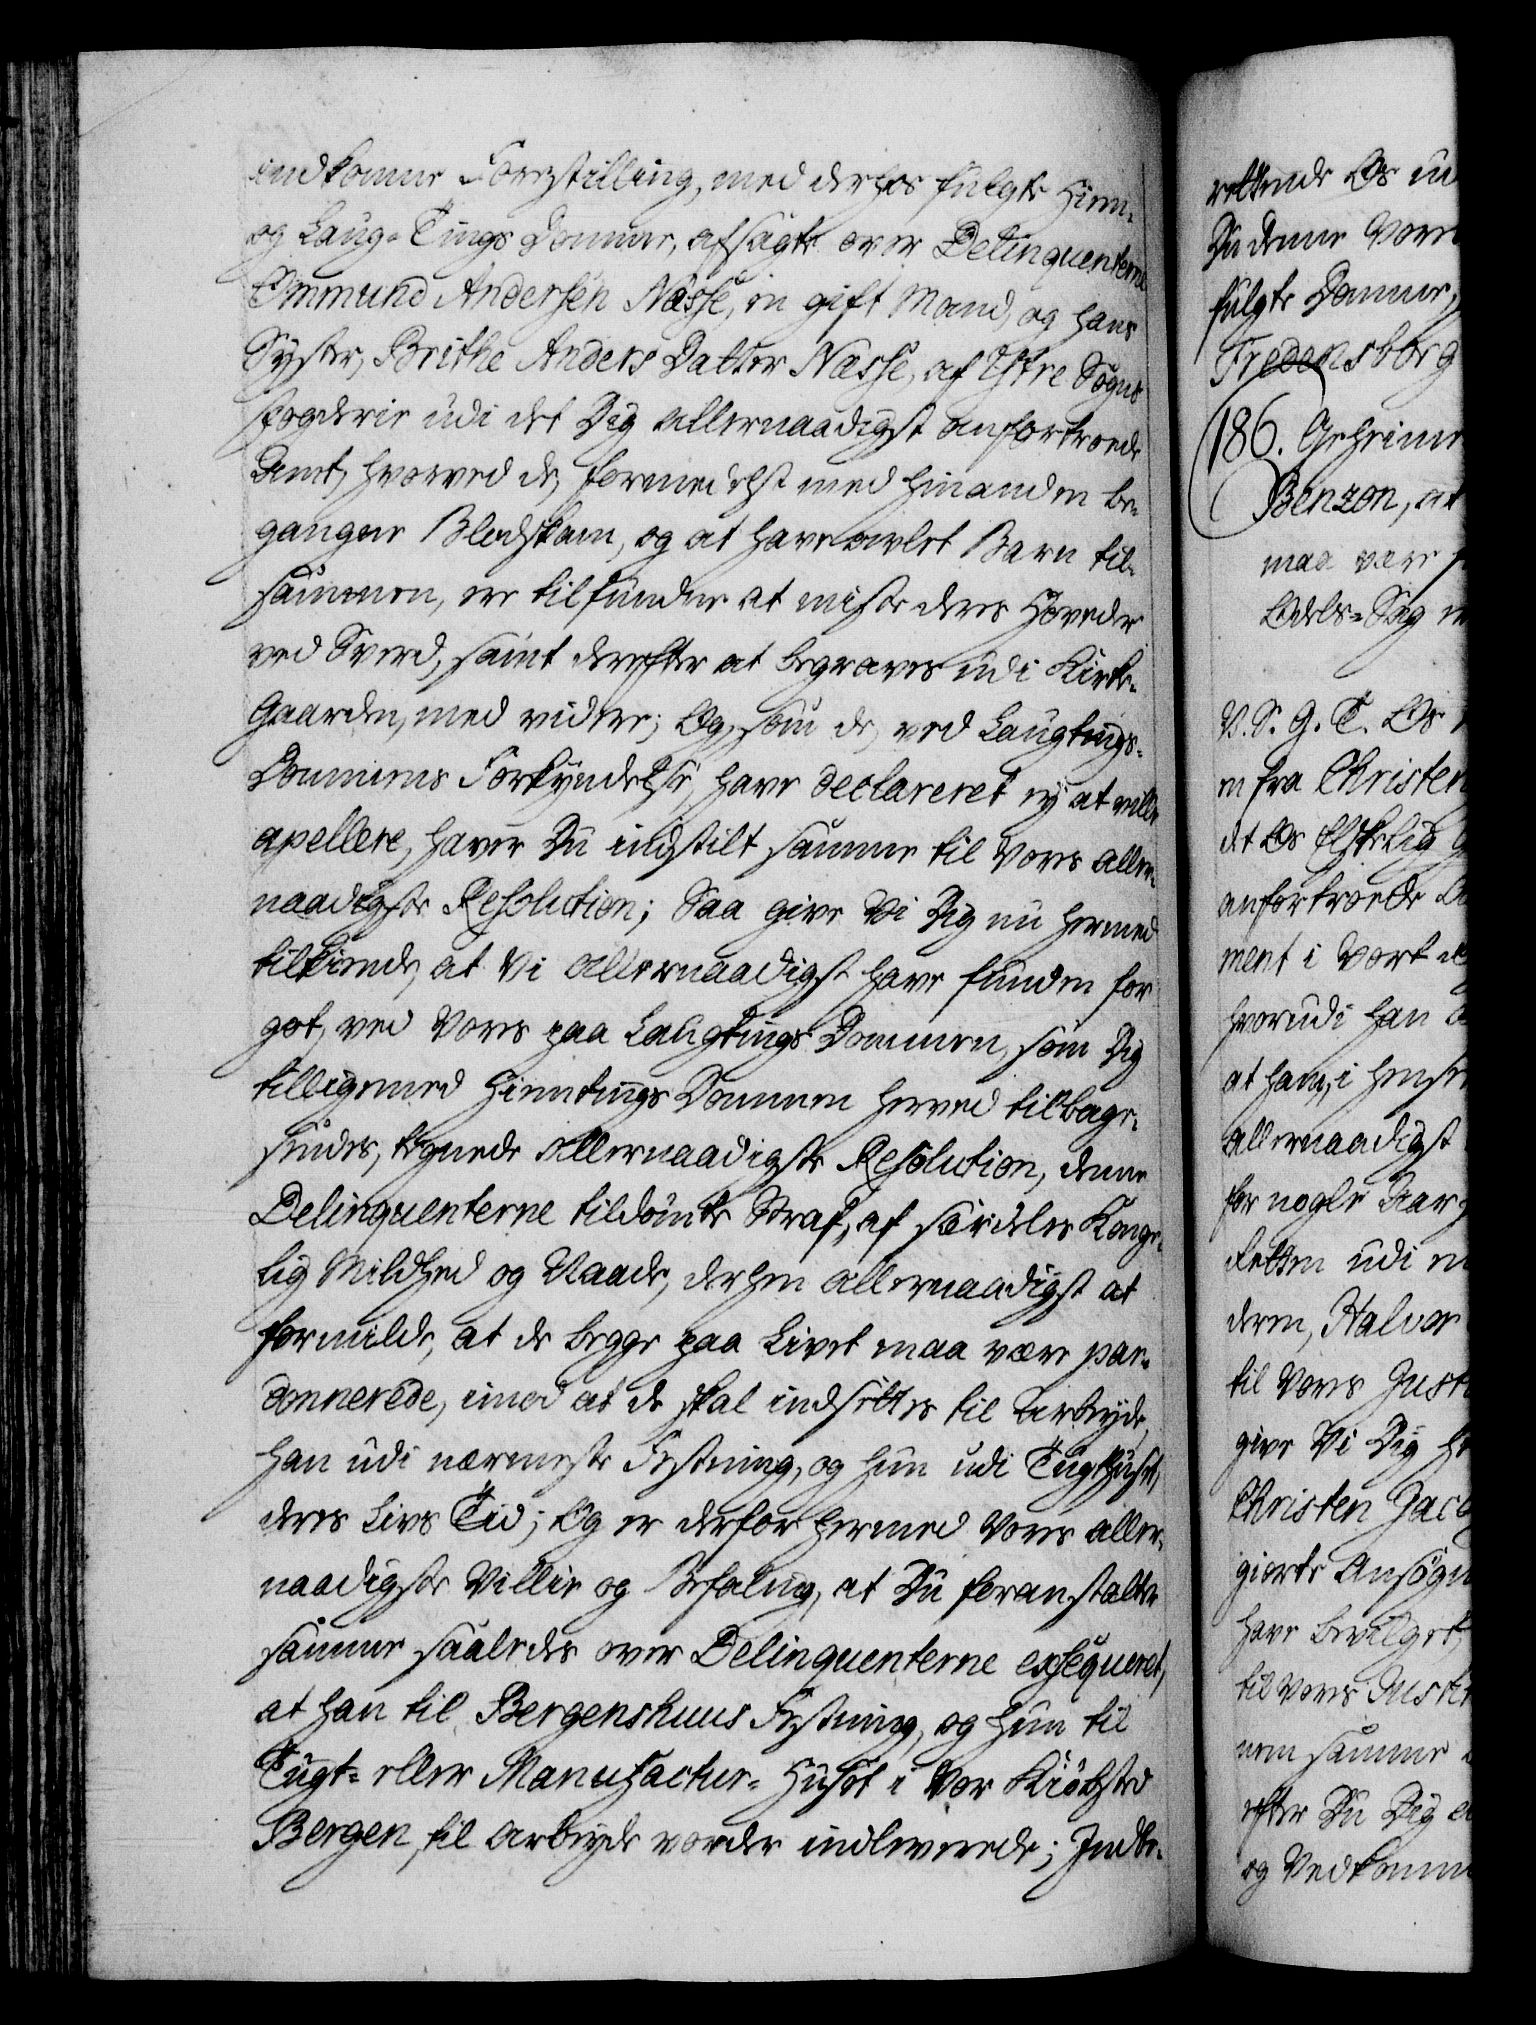 indkomne Forestilling, med derhos fulgte Hiem-
og Laug-Tings Domme, afsagte over Delinquenterne
Ommund Andersen Næsse, en gift Mand, og hans
Syster, Brithe Anders Datter Næsse, af Systre Sogns
Fogderie udi det Dig allernaadigst anfortroede
Amt, hvorved de, formedelst med hinanden be-
gangne Blodskam, og at have avlet Barn til-
sammen, ere tilfundne at miste deres Hoveder
ved Sverd, samt derefter at begraves udi Kirke-
Gaarden, med videre; Og, som de, ved Laugtings-
Dommens Forkyndelse, have declareret ej at ville
apellere, haver Du indstilt samme til Vores aller-
naadigste Resolution; Saa give Vi Dig nu hermed
tilkiende, at Vi allernaadigst have funden for
got, ved Vores paa Laugtings Dommen, som Dig
tilligemed Hiemtings Dommen herved tilbage-
sendes, tegnede allernaadigste Resolution, denne
Delinquenterne tildømte Straf, af særdeles Konge-
lig Mildhed og Naade, derhen allernaadigst at
formilde, at de begge paa Livet maa være par-
donnerede, imod at de skal indsættes til Arbeyde,
han udi nærmeste Festning, og hun udi Tugthuset,
deres Livs Tid; Og er derfor hermed Vores aller-
naadigste Villie og Befaling, at Du foranstalter
samme saaledes over Delinquenterne exseqveret,
at han til Bergenshuus Festning, og hun til
Tugt- eller Manufactur-Huset i Vor Kiøbsted
Bergen, til Arbeyde vorder indleverede; Indbe-
rettende Os
Du denne Vores
fulgte Domme,
Fredensborg
186. Geheime
Benzon, at
maa være
Odels-Sag
V. S. G. T. Os
en fra Christen
det Os Elskelig
anfortroede
ment i Vort
hvorudi han
at ham, i Hense
allernaadigst
for nogle Aar
Retten udi
deren, Halvor
til Vores Justi
give Vi Dig
Christen Jacob
giorte Ansøgn
have bevilget,
til Vores Justi
nem samme
efter Du Dig
og Vedkomme